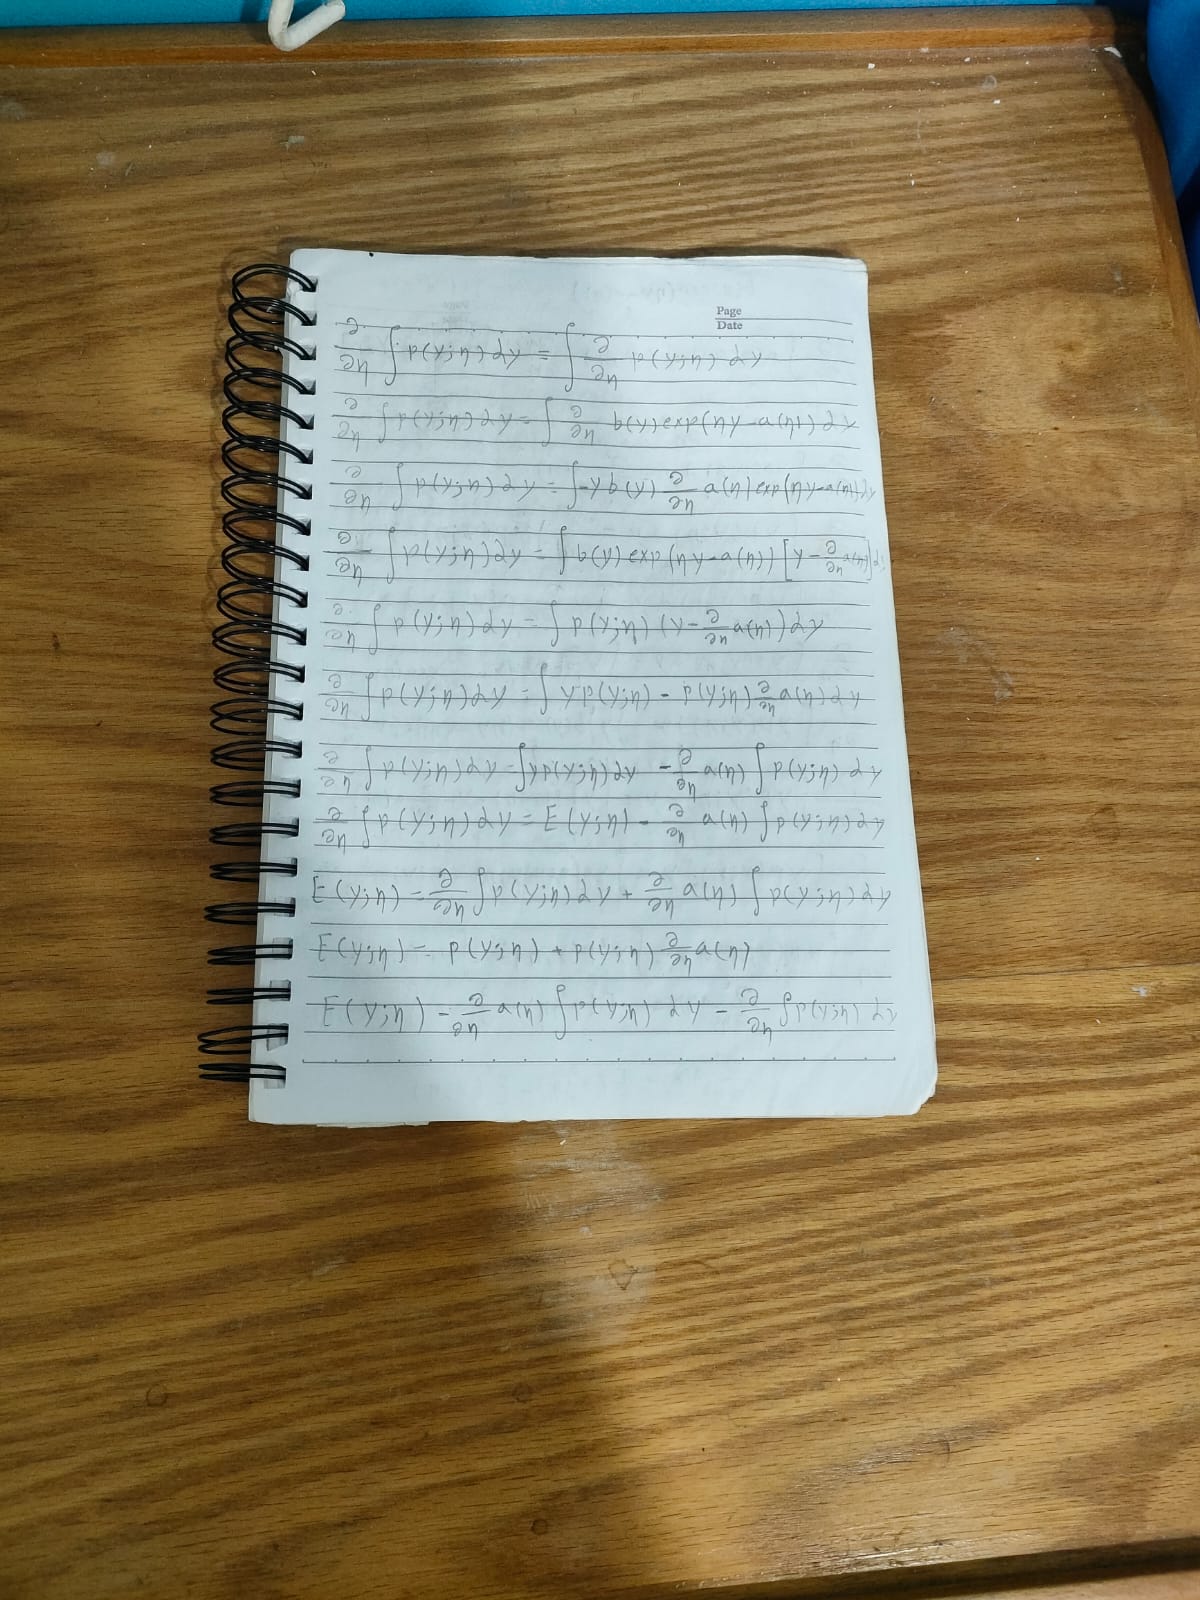 Page
Date
∂/∂η ∫ p(y;η) dy = ∫ ∂/∂η p(y;η) dy
∂/∂η ∫ p(y;η) dy = ∫ ∂/∂η b(y) exp(ηy - a(η)) dy
∂/∂η ∫ p(y;η) dy = ∫ -y b(y) ∂/∂η a(η) exp(ηy - a(η)) dy
∂/∂η ∫ p(y;η) dy = ∫ b(y) exp(ηy - a(η)) [y - ∂/∂η a(η)] dy
∂/∂η ∫ p(y;η) dy = ∫ p(y;η) (y - ∂/∂η a(η)) dy
∂/∂η ∫ p(y;η) dy = ∫ y p(y;η) - p(y;η) ∂/∂η a(η) dy
∂/∂η ∫ p(y;η) dy = ∫ y p(y;η) dy - ∂/∂η a(η) ∫ p(y;η) dy
∂/∂η ∫ p(y;η) dy = E(y;η) - ∂/∂η a(η) ∫ p(y;η) dy
E(y;η) = ∂/∂η ∫ p(y;η) dy + ∂/∂η a(η) ∫ p(y;η) dy
E(y;η) = p(y;η) + p(y;η) ∂/∂η a(η)
E(y;η) = ∂/∂η a(η) ∫ p(y;η) dy - ∂/∂η ∫ p(y;η) dy